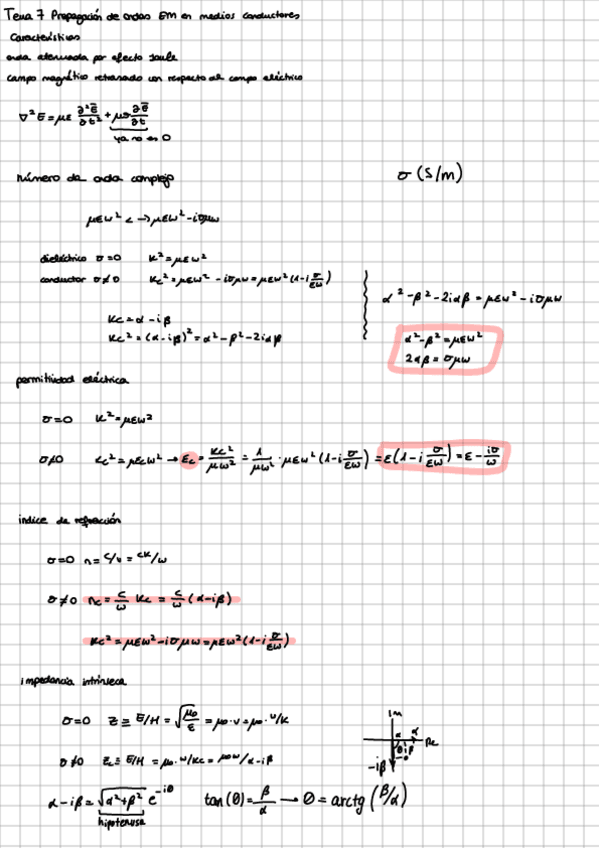 Tema 7 Propagación de ondas EM en medios conductores
Características
onda atenuada por efecto Joule
campo magnético retrasado con respecto al campo eléctrico
∇²E̅ = με ∂²E̅/∂t² + μσ ∂E̅/∂t
ya no es 0
número de onda complejo
σ (S/m)
μεω² <-> μεω² - iσμω
dieléctrico σ=0 k² = μεω²
conductor σ≠0 kc² = μεω² - iσμω = μεω² (1 - i σ/εω)
kc = α - iβ
kc² = (α - iβ)² = α² - β² - 2iαβ
α² - β² - 2iαβ = μεω² - iσμω
α² - β² = μεω²
2αβ = σμω
permitividad eléctrica
σ=0 k² = μεω²
σ≠0 kc² = μεcω² → εc = kc²/μω² = 1/μω² · μεω² (1 - i σ/εω) = ε(1 - i σ/εω) = ε - iσ/ω
índice de refracción
σ=0 n = c/v = ck/ω
σ≠0 nc = c/ω kc = c/ω (α - iβ)
kc² = μεω² - iσμω = μεω² (1 - i σ/εω)
impedancia intrínseca
σ=0 Z ≅ E/H = √(μ0/ε) = μ0·v = μ0·ω/k
σ≠0 Zc ≅ E/H = μ0·ω/kc = μ0ω/α-iβ
α - iβ = √(α²+β²) e^-iθ
hipotenusa
tan(θ) = β/α → θ = arctg (β/α)
Im
Re
α
θ
-iβ